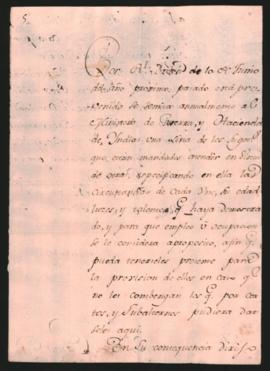 5.
Por Rl. Orden de 10 de Junio
del año proximo pasado está pre-
venido se remita annualmente al
Ministerio de Guerra, y Hacienda
de Indias una Lista de los Sugetos
que están mandados atender en
especificando en ella las
circunstancias de cada Uno, su edad
luces, y talentos q. haya demostrado,
y para que empleo ú ocupacion
se le considera aproposito, afin q.
pueda tenerseles presente para
la provision de ellos en caso q.
no les combengan los q. por cor-
tos, y Subalternos pudiera dar
seles aqui.
En su consequencia dirijo